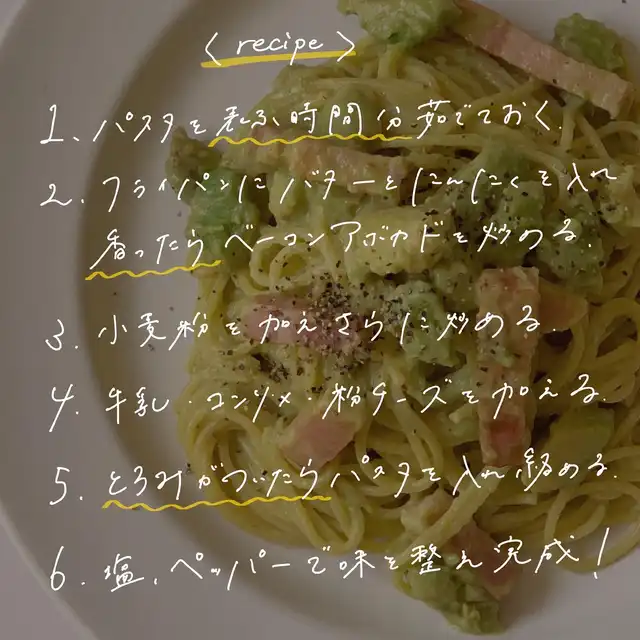 〈 recipe 〉
1. パスタを表示時間分茹でておく.
2. フライパンにバターとにんにくを入れ
香ったらベーコンアボカドを炒める.
3. 小麦粉を加えさらに炒める.
4. 牛乳・コンソメ・粉チーズを加える.
5. とろみがついたらパスタを入れ絡める.
6. 塩、ペッパーで味を整え完成!